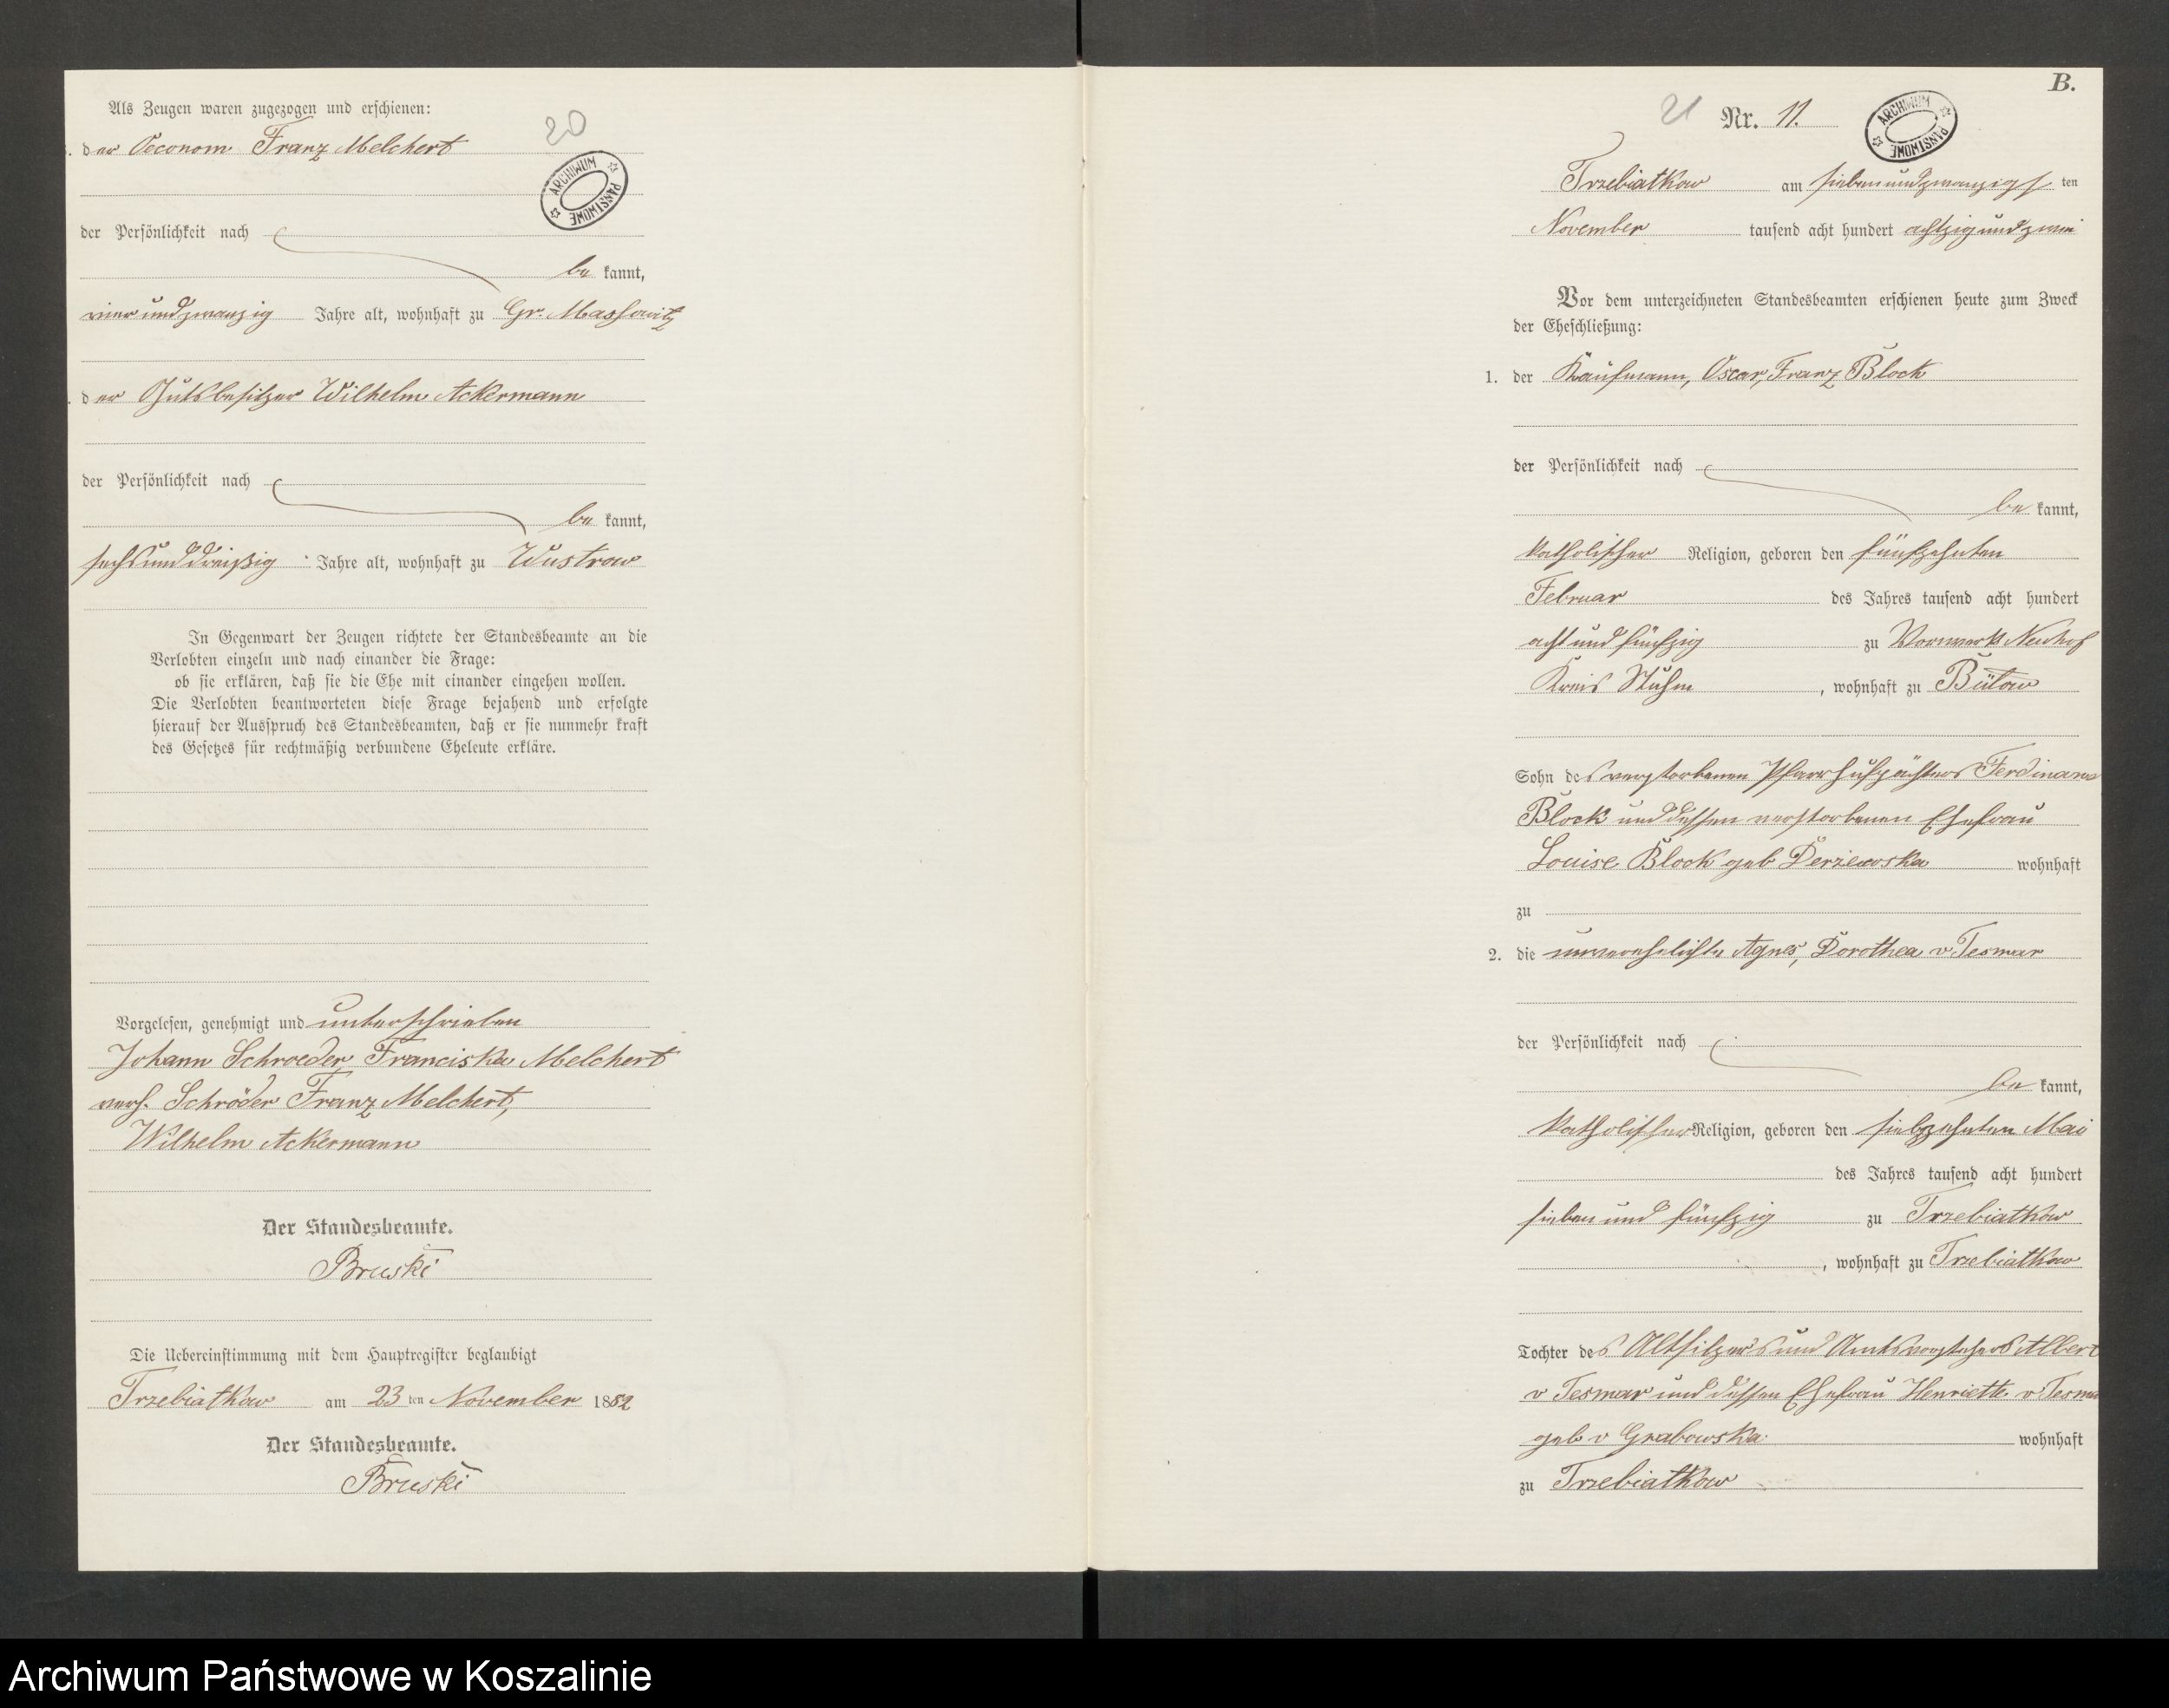 Als Zeugen waren zugezogen und erschienen:
20
der Oeconom Franz Melchert
ARCHIWUM PAŃSTWOWE
der Persönlichkeit nach
be kannt,
vierundzwanzig Jahre alt, wohnhaft zu Gr. Massowitz
der Gutsbesitzer Wilhelm Ackermann
der Persönlichkeit nach
be kannt,
sechsunddreißig Jahre alt, wohnhaft zu Wustrow
In Gegenwart der Zeugen richtete der Standesbeamte an die
Verlobten einzeln und nach einander die Frage:
ob sie erklären, daß sie die Ehe mit einander eingehen wollen.
Die Verlobten beantworteten diese Frage bejahend und erfolgte
hierauf der Ausspruch des Standesbeamten, daß er sie nunmehr kraft
des Gesetzes für rechtmäßig verbundene Eheleute erkläre.
Vorgelesen, genehmigt und unterschrieben
Johann Schroeder, Franciska Melchert
verh. Schröder Franz Melchert,
Wilhelm Ackermann
Der Standesbeamte.
Bruski
Die Uebereinstimmung mit dem Hauptregister beglaubigt
Trzebiatkow am 23 ten November 1882
Der Standesbeamte.
Bruski
B.
21 Nr. 11.
ARCHIWUM PAŃSTWOWE
Trzebiatkow am siebenundzwanzigs ten
November tausend acht hundert achtzig und zwei
Vor dem unterzeichneten Standesbeamten erschienen heute zum Zweck
der Eheschließung:
1. der Kaufmann, Oscar, Franz Block
der Persönlichkeit nach
be kannt,
katholischer Religion, geboren den fünfzehnten
Februar des Jahres tausend acht hundert
acht und fünfzig zu Vorwerk Neuhof
Kreis Stuhm, wohnhaft zu Bütow
Sohn des verstorbenen Pfarrhufpächters Ferdinand
Block und dessen verstorbenen Ehefrau
Louise Block geb Derziewska wohnhaft
zu
2. die unverehelichte Agnes, Dorothea v Tesmar
der Persönlichkeit nach
be kannt,
katholischer Religion, geboren den siebzehnten Mai
des Jahres tausend acht hundert
sieben und fünfzig zu Trzebiatkow
, wohnhaft zu Trzebiatkow
Tochter des Altsitzers und Amtsvorstehers Albert
v Tesmar und dessen Ehefrau Henriette v Tesmar
geb v Grabowska wohnhaft
zu Trzebiatkow
Archiwum Państwowe w Koszalinie